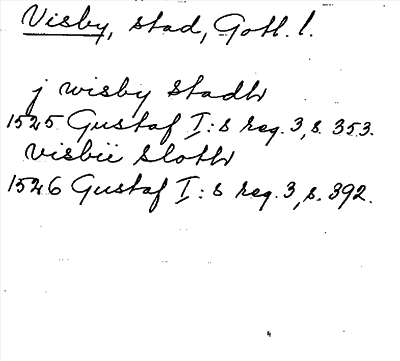 Visby, stad, Gotl. l.
j wisby Stadh
1525 Gustaf I:s reg. 3, s. 353.
Visbii Sloth
1526 Gustaf I:s reg. 3, s. 392.